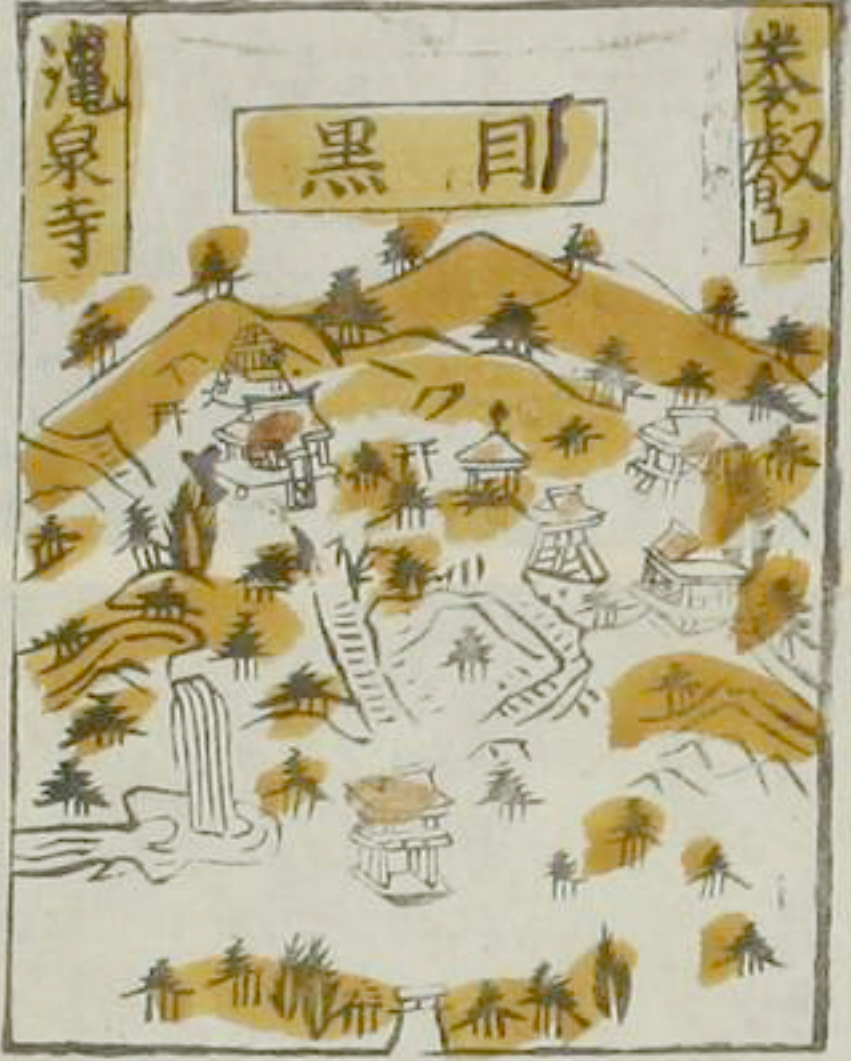 泰叡山
目黒
瀧泉寺